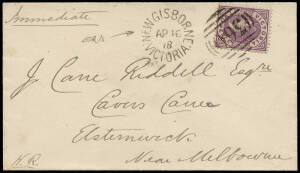 Immediate
NEW GISBORNE
AP 16
18
VICTORIA
J. Carre Riddell Esqre
Cavers Carre
Elsternwick
Near Melbourne